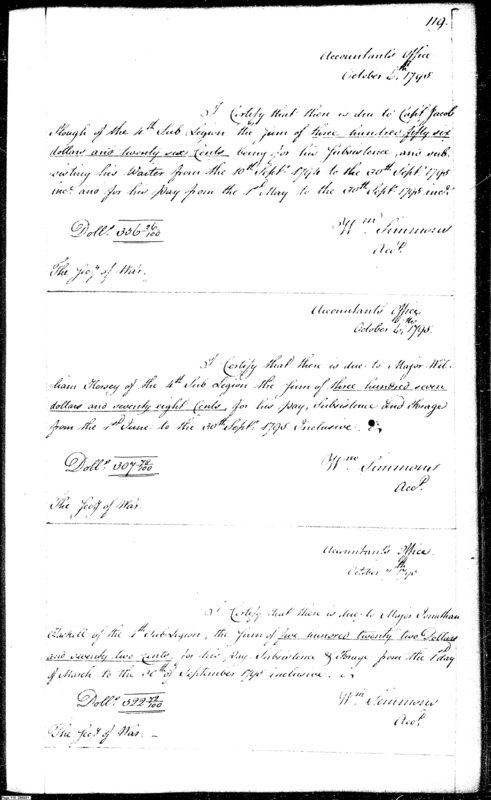 119.
Accountant's Office
October 6th 1795
I Certify that there is due to Capt. Jacob
Slough of the 4th Sub Legion the sum of three hundred fifty six
dollars and twenty six Cents being for his Subsistence and sub-
sisting his Waiter from the 10th Septr. 1794 to the 30th Septr. 1795
incr. and for his pay from the 1st May to the 30th Septr. 1795 incr.
Dolls. 356 26/100
Wm Simmons
Acct.
The Secy of War.
Accountant's Office
October 6th, 1795.
I Certify that there is due to Major Wil-
liam Kersey of the 4th Sub Legion the sum of three hundred seven
dollars and seventy eight Cents, for his pay, Subsistence and Forage
from the 1st June to the 30th Septr. 1795 Inclusive.
Dolls. 307 78/100
Wm Simmons
Acct.
The Secy of War.
Accountant's Office
October
I Certify that there is due to Major Jonathan
Haskell of the 4th Sub Legion, the sum of five hundred twenty two Dollars
and seventy two Cents, for his Pay Subsistence & Forage from the 1st day
of March to the 30th of September 1795 inclusive.
Dolls. 522 72/100
Wm Simmons
Acct.
The Secy of War.